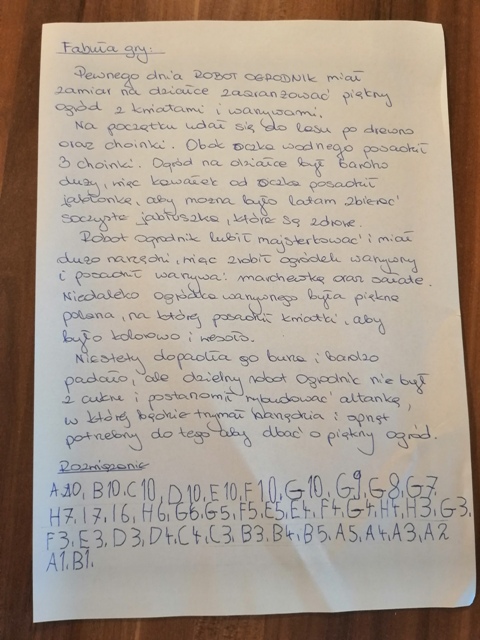 Fabuła gry:
Pewnego dnia ROBOT OGRODNIK miał
zamiar na działce zaaranżować piękny
ogród z kwiatami i warzywami.
Na początku udał się do lasu po drewno
oraz choinki. Obok oczka wodnego posadził
3 choinki. Ogród na działce był bardzo
duży, więc kawałek od oczka posadził
jabłonkę, aby można było latam zbierać
soczyste jabłuszka, które są zdrowe.
Robot Ogrodnik lubił majsterkować i miał
dużo narzędzi, więc zrobił ogródek warzywny
i posadził warzywa: marchewkę oraz sałatę.
Niedaleko ogródka warzywnego była piękna
polana, na której posadził kwiatki, aby
było kolorowo i wesoło.
Niestety dopadła go burza i bardzo
padało, ale dzielny robot Ogrodnik nie był
z cukru i postanowił wybudować altankę,
w której będzie trzymał narzędzia i sprzęt
potrzebny do tego aby dbać o piękny ogród.
Rozwiązanie
A10, B10, C10, D10, E10, F10, G10, G9, G8, G7
H7, I7, I6, H6, G6, G5, F5, E5, E4, F4, G4, H4, H3, G3,
F3, E3, D3, D4, C4, C3, B3, B4, B5, A5, A4, A3, A2
A1, B1.